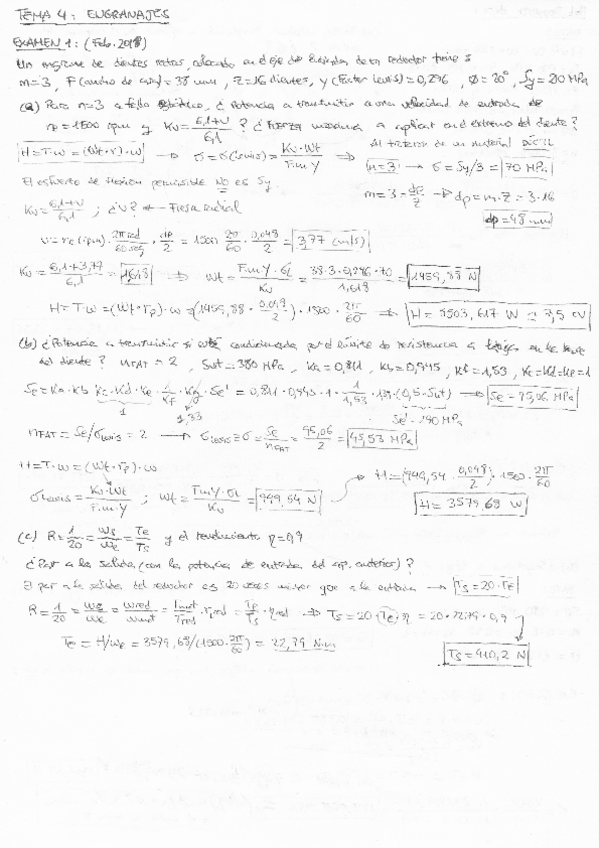 TEMA 4: ENGRANAJES
EXAMEN 1: (Feb. 2018)
Un engrane de dientes rectos, colocado en el eje de entrada de un reductor tiene:
m=3, F(ancho de cara)=38 mm, Z=16 dientes, Y(Factor Lewis)=0,296, Ø=20°, Sy=210 MPa
(a) Para n=3 a fallo estático, ¿Potencia a transmitir a una velocidad de entrada de
np=1500 rpm y Kv=6,1+v/6,1? ¿Fuerza máxima a aplicar en el extremo del diente?
H=T·w=(Wt·r)·w → σ=σ(Lewis)=Kv·Wt/F·m·Y ⇒ n=3 → σ=Sy/3=70 MPa
El esfuerzo de flexión permisible NO es Sy.
m=3=dp/Z → dp=m·Z=3·16
dp=48 mm
Kv=6,1+v/6,1; ¿v?
v=np(rpm)·2π rad/60 seg·dp/2=1500·2π/60·0,048/2=3,77 (m/s)
Kv=6,1+3,77/6,1=1,618 → Wt=F·m·Y·σL/Kv=38·3·0,296·70/1,618=1459,88 N
H=T·w=(Wt·rp)·w=(1459,88·0,048/2)·1500·2π/60 ⇒ H=5503,617 W ≃ 7,5 CV
(b) ¿Potencia a transmitir si está condicionada por el límite de resistencia a fatiga en la base
del diente? nFAT=2, Sut=380 MPa, Ka=0,811, Kb=0,945, Kf=1,53, Kc=Kd=Ke=1
Se=Ka·Kb·Kc·Kd·Ke·1/Kf·Kg·Se'=0,811·0,945·1·1/1,53·1,33·(0,5·Sut) → Se=95,06 MPa
1
1,33
Se'=190 MPa
nFAT=Se/σLewis=2 → σLewis=σ=Se/nFAT=95,06/2=47,53 MPa
H=T·w=(Wt·rp)·w
σLewis=Kv·Wt/F·m·Y; Wt=F·m·Y·σL/Kv=949,54 N
H=(949,54·0,048/2)·1500·2π/60
H=3579,69 W
(c) R=1/20=ws/we=Te/Ts y el rendimiento η=0,9
¿Par a la salida, (con la potencia de entrada del ap. anterior)?
El par a la salida del reductor es 20 veces mayor que a la entrada → Ts=20·Te
⇒ Ts=20·Te·η=20·22,79·0,9
Te=H/we=3579,69/(1500·2π/60)=22,79 N·m
Ts=410,2 N